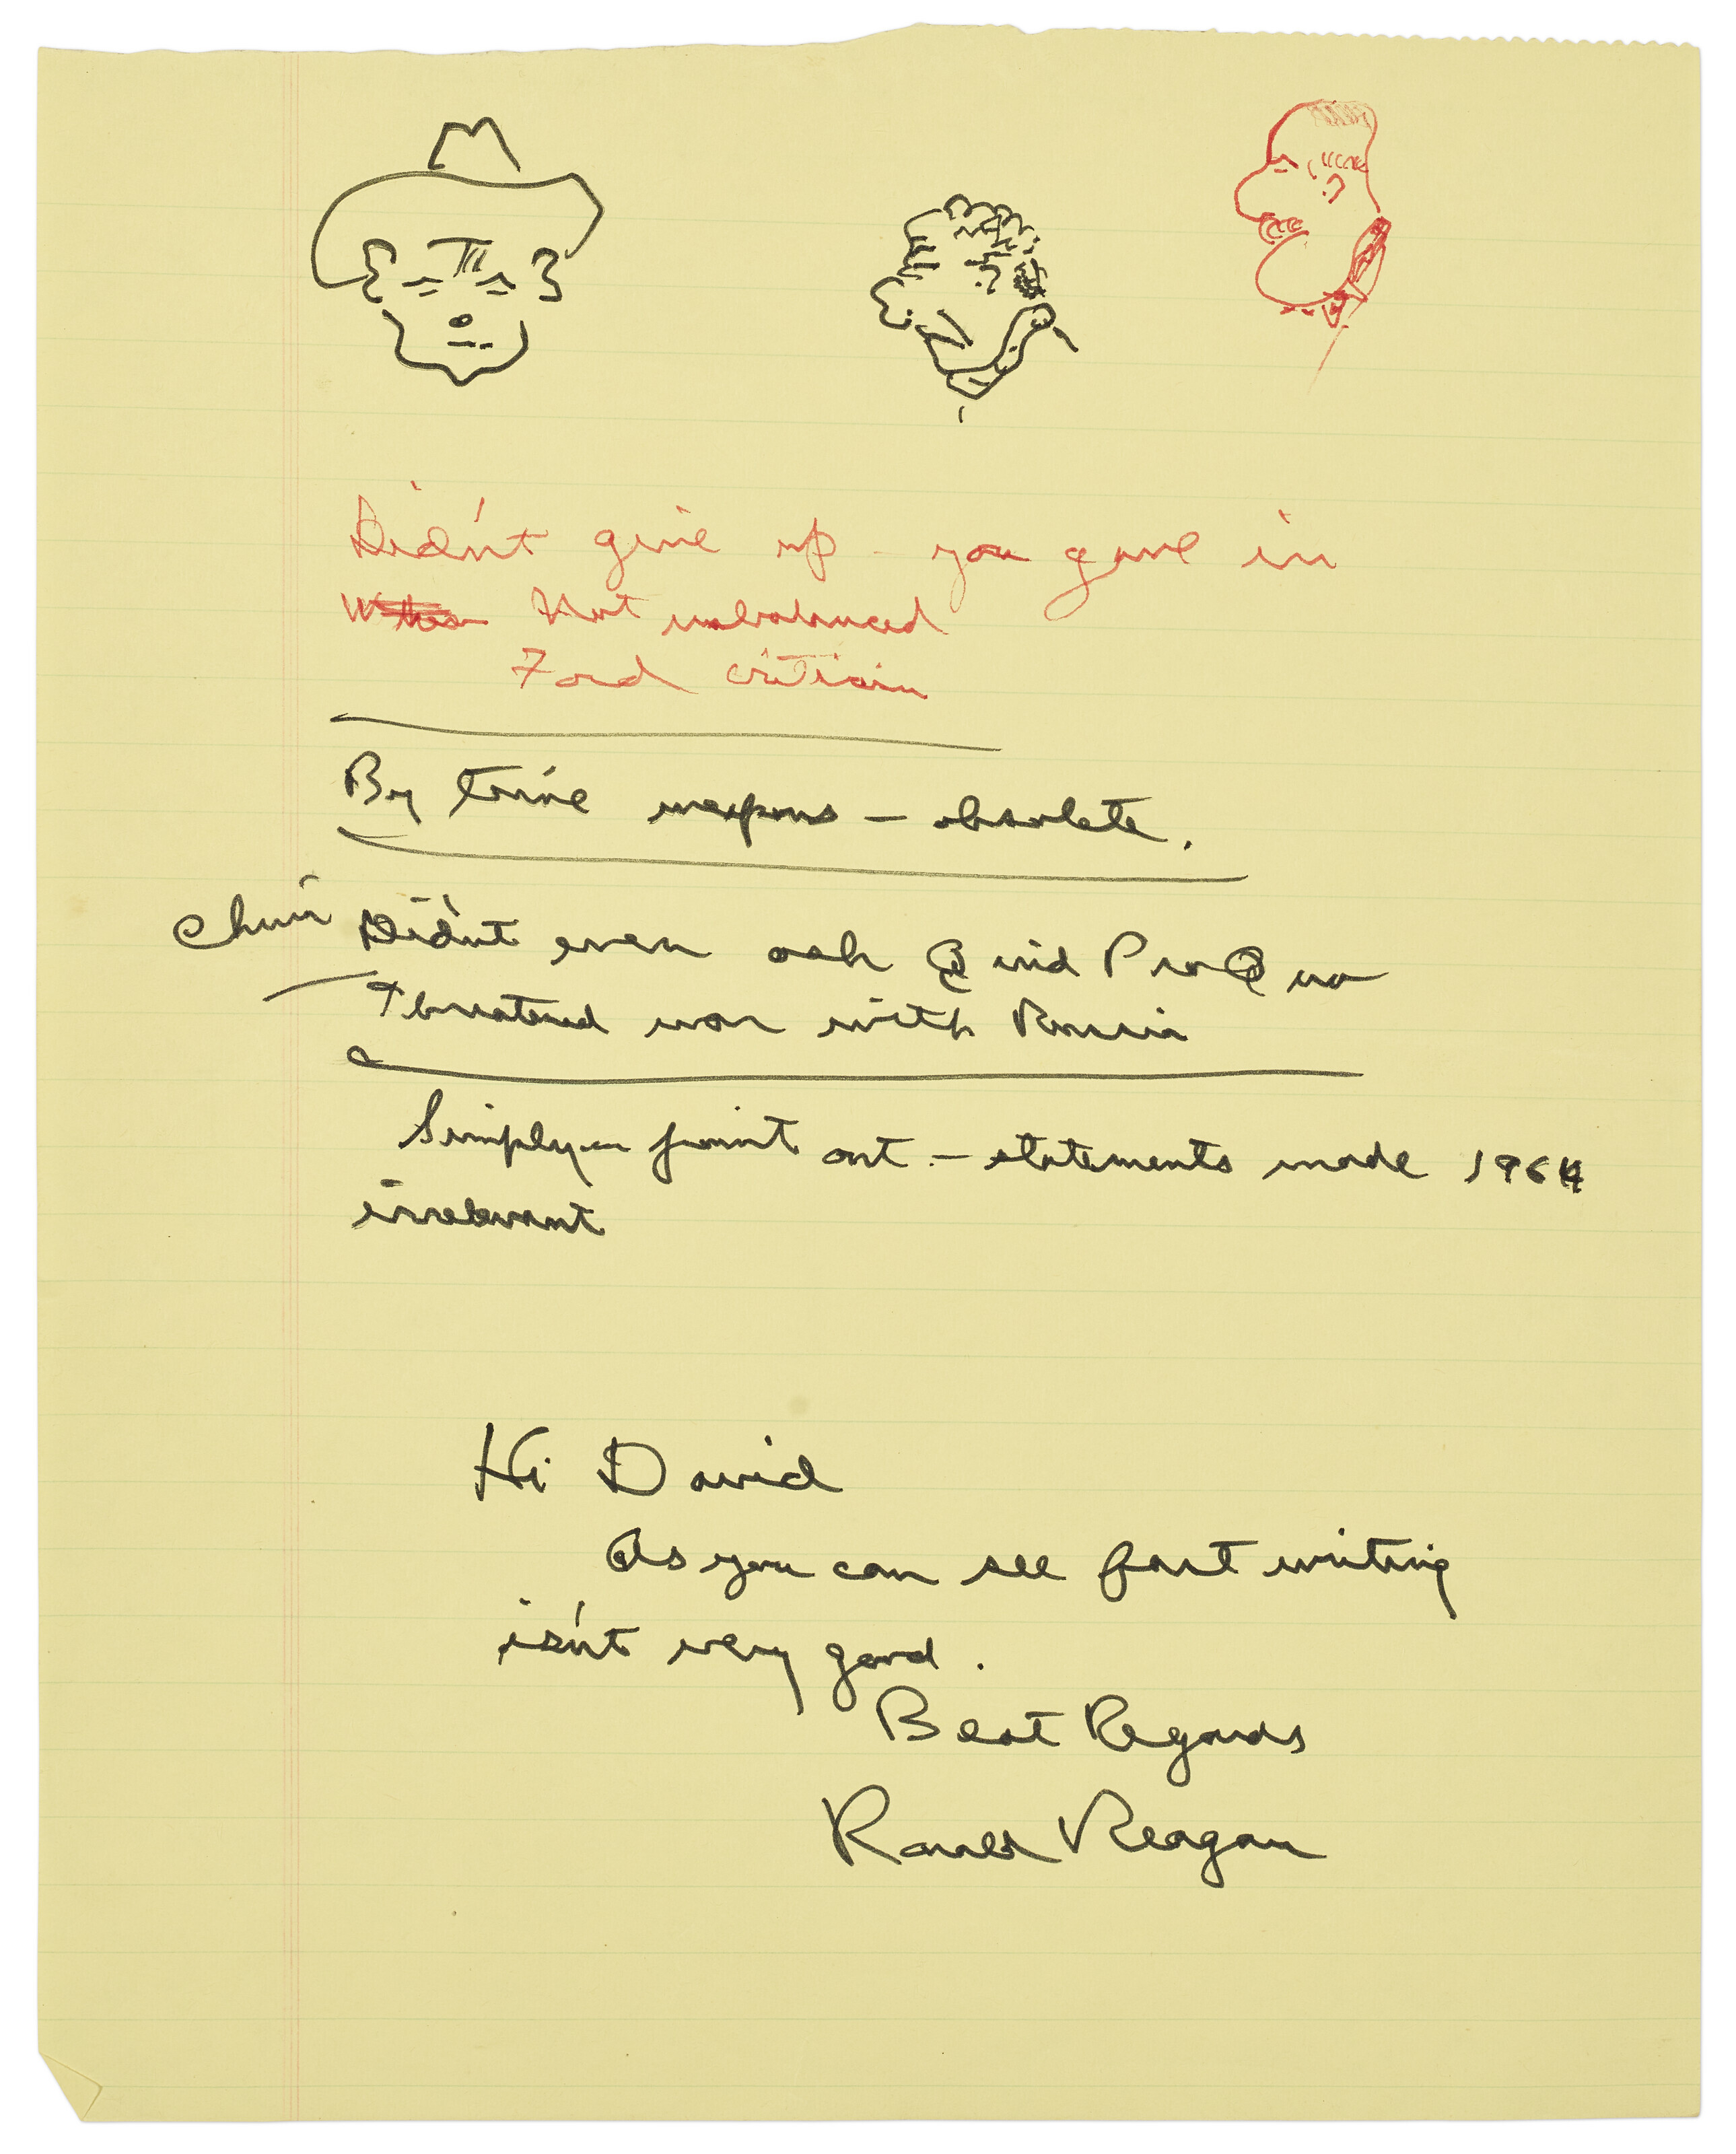 Didn't give up - you gave in
Not unbalanced
Ford criticism
By time weapons — obsolete.
Didn't even ask Quid Pro Quo
Threatened war with Russia
Simply point out. — statements made 1964
irrelevant
Hi David
As you can see fast writing
isn't very good.
Best Regards
Ronald Reagan